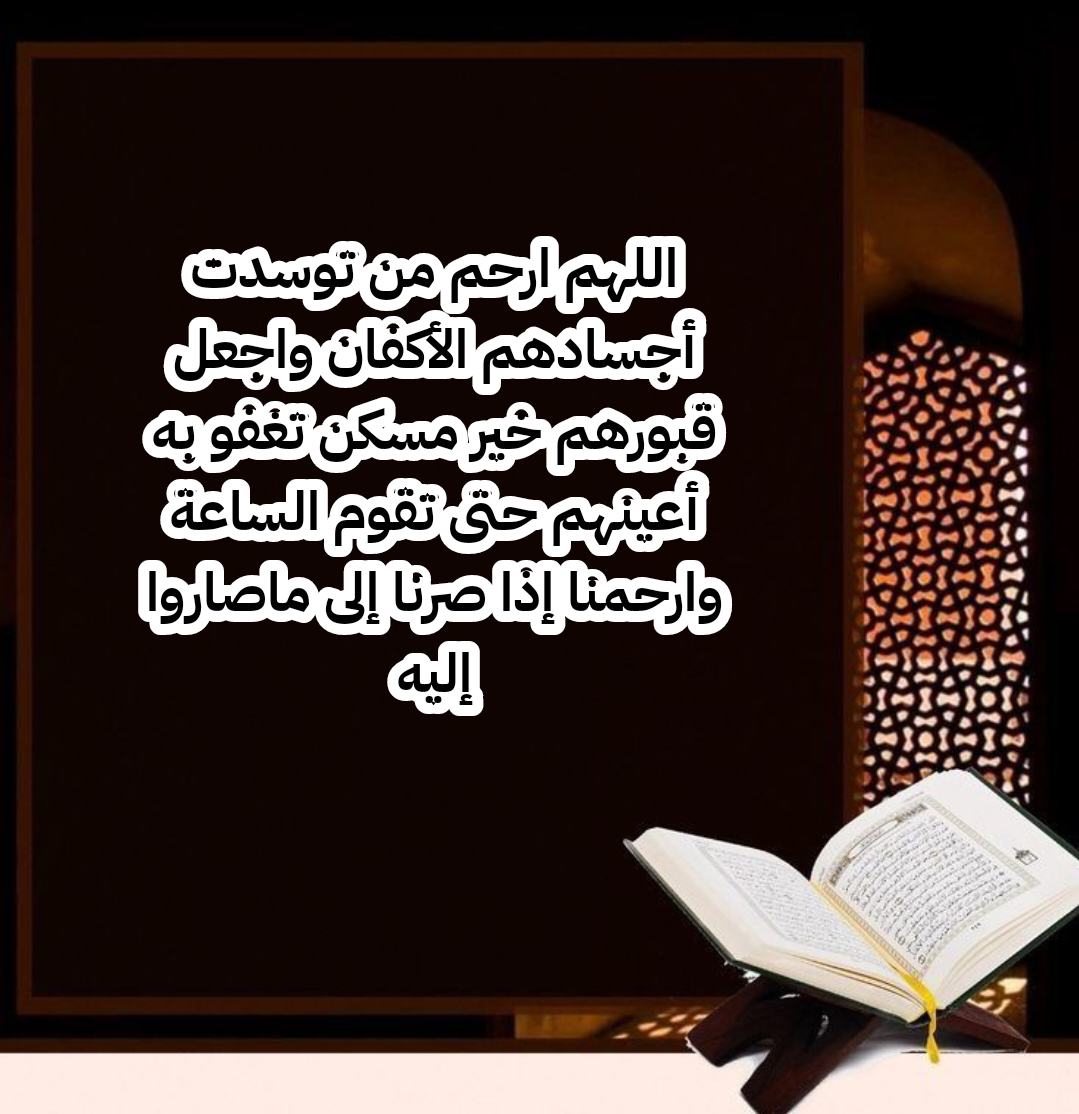 اللهم ارحم من توسدت
أجسادهم الأكفان واجعل
قبورهم خير مسكن تغفو به
أعينهم حتى تقوم الساعة
وارحمنا إذا صرنا إلى ماصاروا
إليه